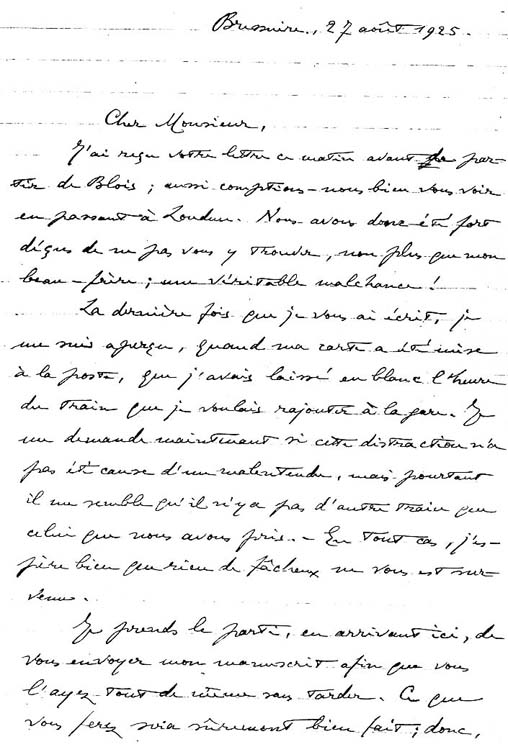 Bressuire, 27 août 1925.
Cher Monsieur,
J'ai reçu votre lettre ce matin avant de par-
tir de Blois ; aussi comptions-nous bien vous voir
en passant à Loudun. Nous avons donc été fort
déçus de ne pas vous y trouver, non plus que mon
beau-frère ; une véritable malchance !
La dernière fois que je vous ai écrit, je
me suis aperçu, quand ma carte a été mise
à la poste, que j'avais laissé en blanc l'heure
du train que je voulais rajouter à la gare. Je
me demande maintenant si cette distraction n'a
pas été cause d'un malentendu, mais pourtant
il me semble qu'il n'y a pas d'autre train que
celui que nous avons pris. - En tout cas, j'es-
père bien que rien de fâcheux ne vous est sur-
venu.
Je prends le parti, en arrivant ici, de
vous envoyer mon manuscrit afin que vous
l'ayez tout de même sans tarder. Ce que
vous ferez sera sûrement bien fait ; donc,